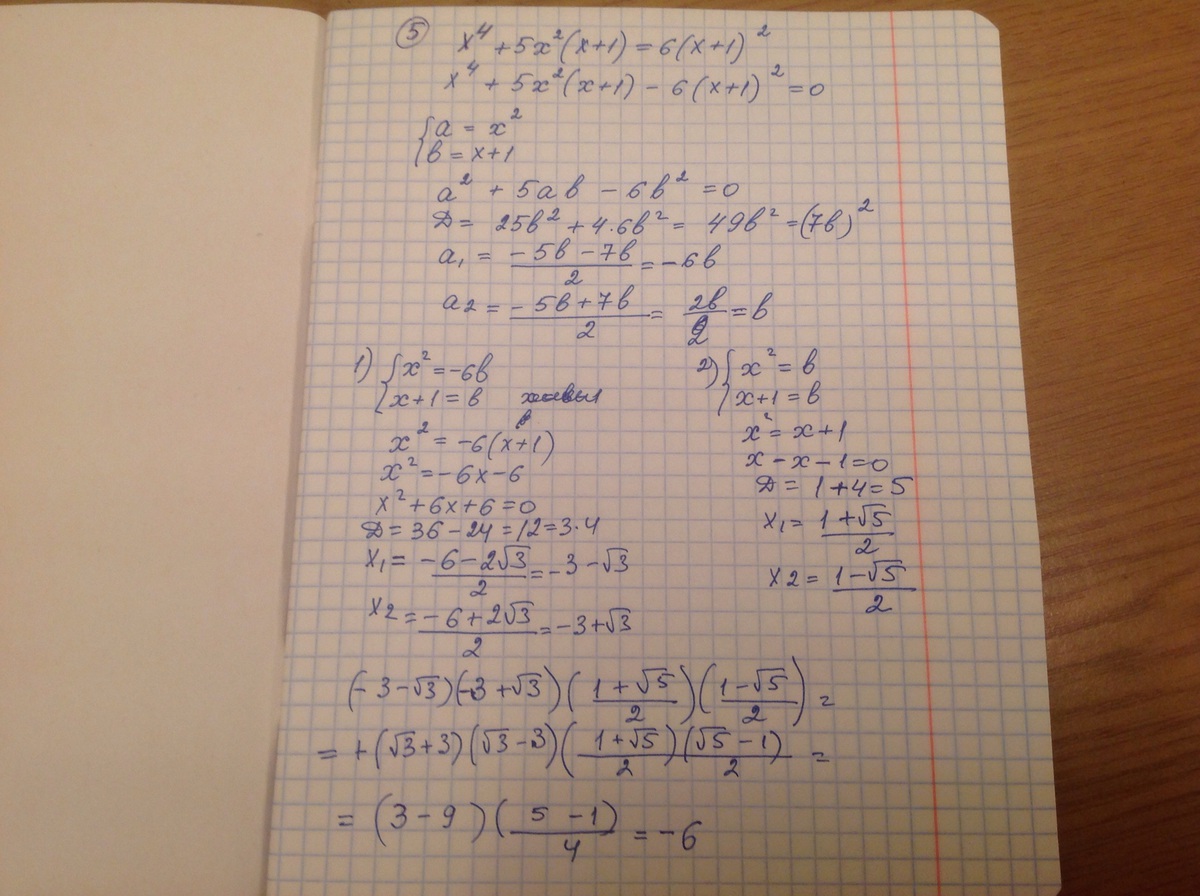 ⑤ x⁴ + 5x²(x+1) = 6(x+1)²
x⁴ + 5x²(x+1) - 6(x+1)² = 0
{ a = x²
{ в = x+1
a² + 5aв - 6в² = 0
Д = 25в² + 4·6в² = 49в² = (7в)²
a₁ = (-5в - 7в)/2 = -6в
a₂ = (-5в + 7в)/2 = 2в/2 = в
1) { x² = -6в
{ x+1 = в
x² = -6(x+1)
x² = -6x-6
x² + 6x + 6 = 0
Д = 36 - 24 = 12 = 3·4
x₁ = (-6 - 2√3)/2 = -3 - √3
x₂ = (-6 + 2√3)/2 = -3 + √3
2) { x² = в
{ x+1 = в
x² = x+1
x - x - 1 = 0
Д = 1 + 4 = 5
x₁ = (1 + √5)/2
x₂ = (1 - √5)/2
(-3-√3)(-3+√3)((1+√5)/2)((1-√5)/2) =
= +(√3+3)(√3-3)((1+√5)/2)((√5-1)/2) =
= (3-9)((5-1)/4) = -6